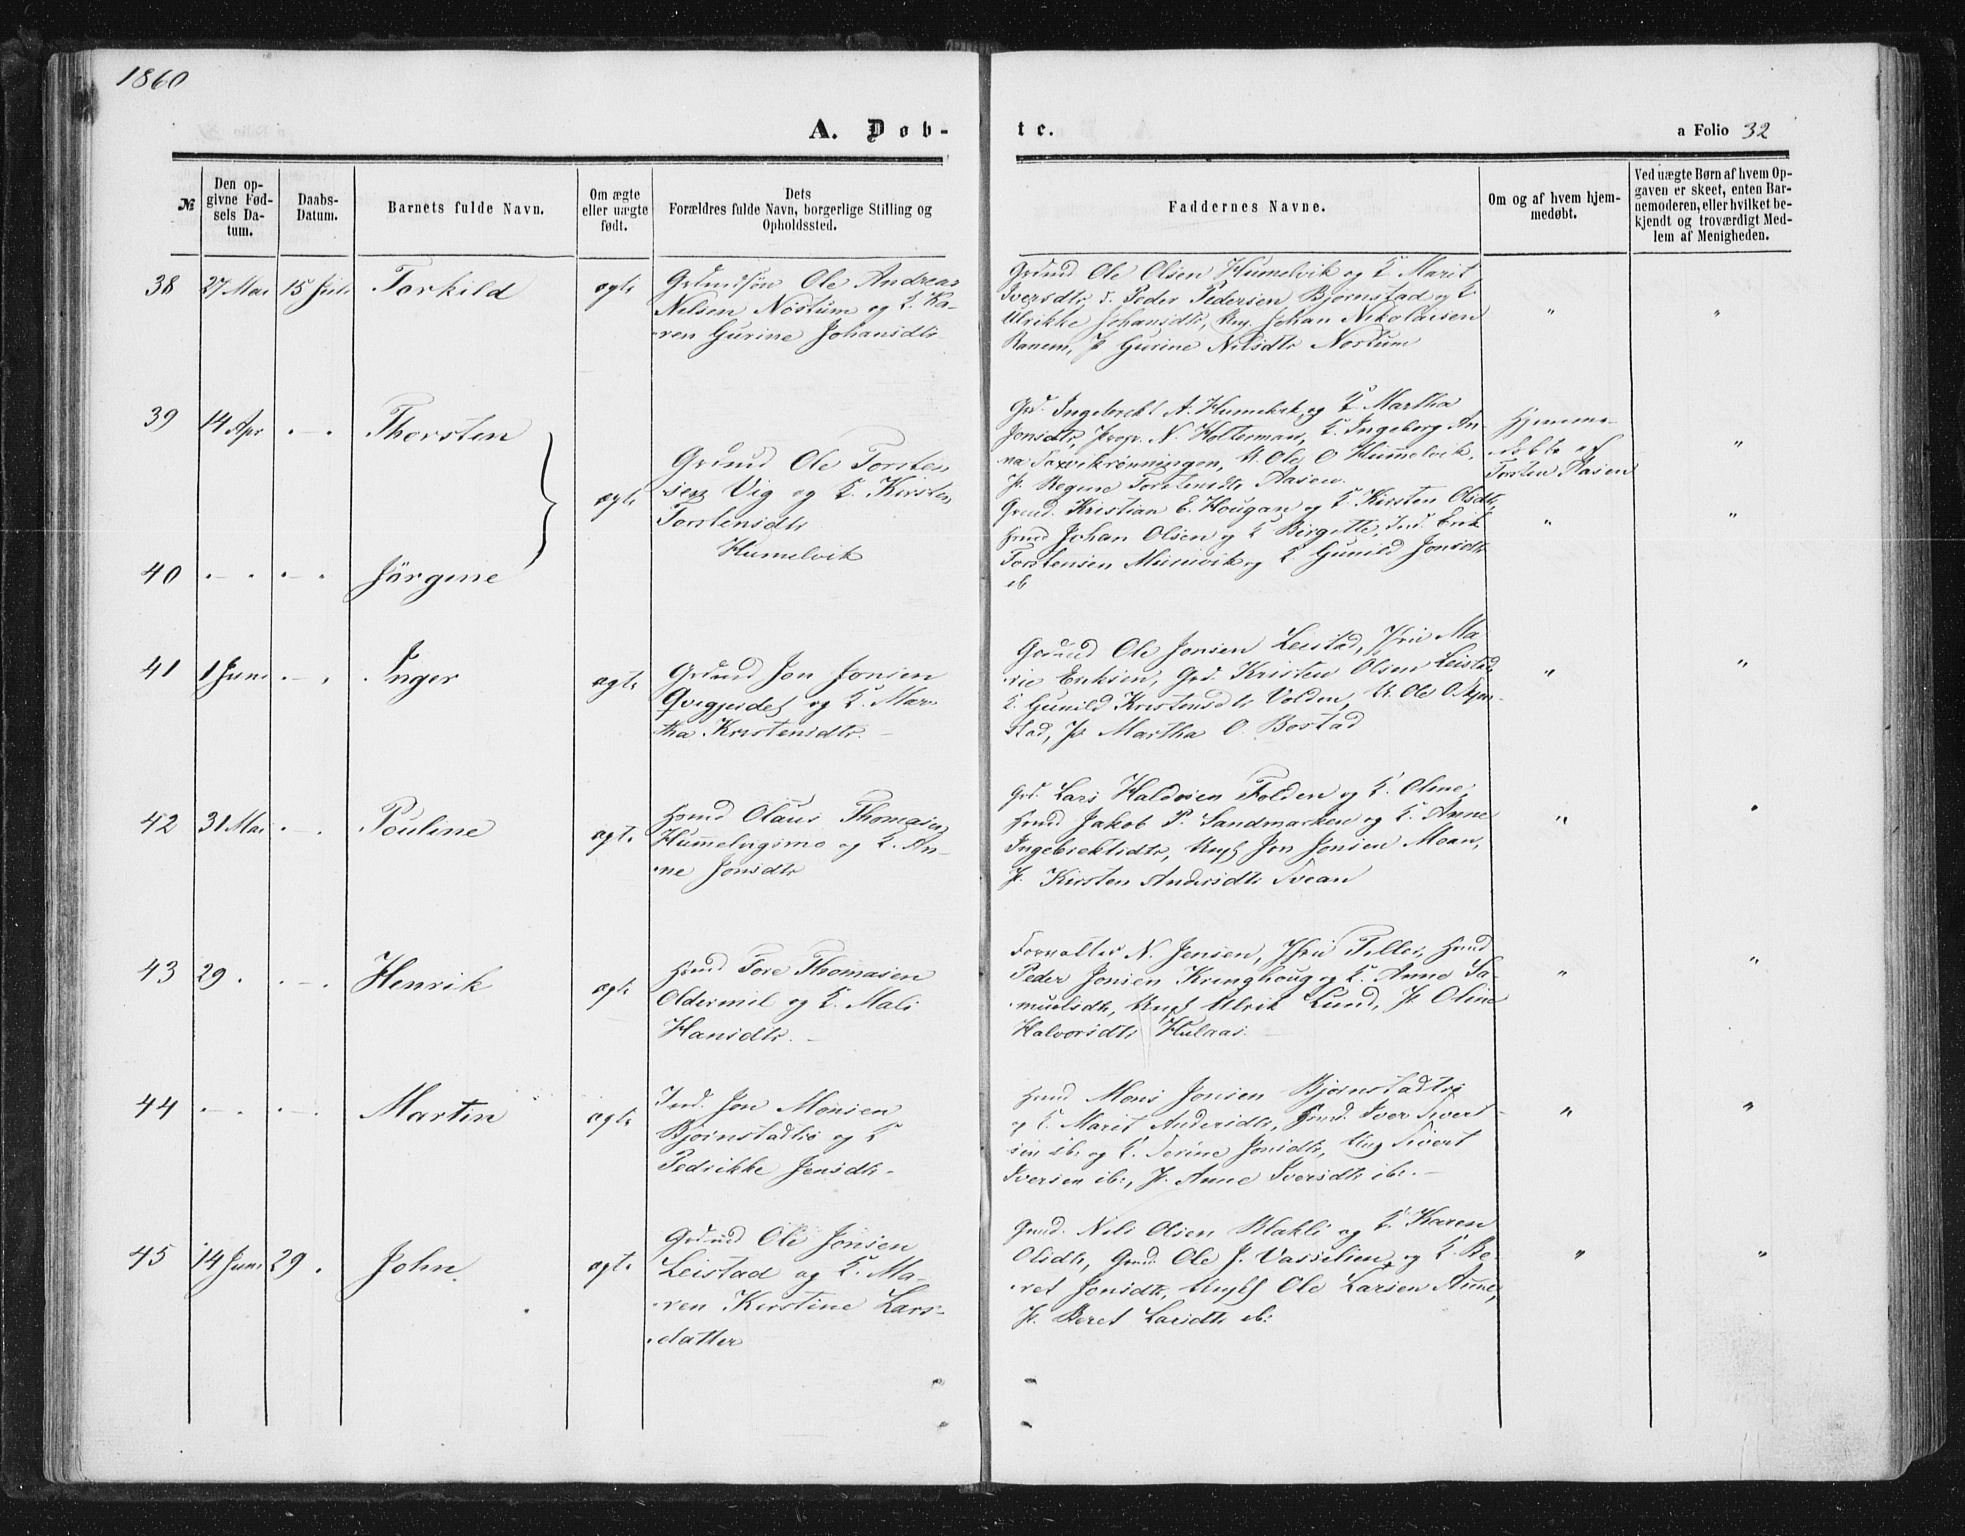 1860
A. Døb-
te.
a Folio 32
№
Den op-
givne Fød-
sels Da-
tum.
Daabs-
Datum.
Barnets fulde Navn.
Om ægte
eller uægte
født.
Dets
Forældres fulde Navn, borgerlige Stilling og
Opholdssted.
Faddernes Navne.
Om og af hvem hjem-
medøbt.
Ved uægte Børn af hvem Op-
gaven er skeet, enten Bar-
nemoderen, eller hvilket be-
kjendt og troværdigt Med-
lem af Menigheden.
38 27 Mai 15 Juli Torkild ægte
Ole Andreas
Nilsen Nøstum og K. Ka-
ren Gurine Johansdtr
Grdmd Ole Olsen Humelvik og K. Marit
Iversdtr, Peder Pedersen Bjørnstad og K
Ulrikke Johansdtr, Ung. Johan Nikolaisen
Ranem, P. Gurine Nilsdtr Nøstum
" "
39 14 Apr . - . Thorsten
ægte
Grdmd Ole Torsten
sen Vig og K. Kirsten
Torstensdtr
Humelvik
Grd. Ingebrekt A. Humelvik og K. Martha
Jonsdtr, Prop. N. Holterman, K. Ingeborg An-
na Saxvikrønningen, U. Ole O Hummelvik,
P. Regine Torstensdtr Aasen.
Hjemme-
døbt af
Torsten Aasen
"
40 . - . . - . Jørgine
Grdmd. Kristian E. Hougan og K. Kirsten Olsdtr,
Hmd Johan Olsen og K Birgitte, Ind. Erik
Torstensen Mursvik og K Gunild Jonsdtr
ib
" "
41 1 Juni . - . Inger ægte
Grdmd Jon Jonsen
og K. Mar-
tha Kristensdtr. -
Grdmd Ole Jonsen Leistad, Jfru Ma-
rie Eriksen, Grd. Kristen Olsen Leistad
K. Gunild Kristensdtr Volden, U. Ole O.
stad, P. Martha O. Bostad
" "
42 31 Mai . - . Pouline ægte
Hsmd Olaus Thomasen
Hummelvigsmo og K. An-
ne Jonsdtr
Grd. Lars Haldosen Folden og K. Oline,
Hsmd Jakob P. Sandmarken og K. Anne
Ingebrektsdtr, Ungk Jon Jonsen Moan,
P. Kirsten Andersdtr Svean
" "
43 29 . . - . Henrik ægte
Hsmd Tore Thomasen
og K. Mali
Hansdtr. -
Forvalter N. Jensen, Jfru Tiller, Hsmd
Peder Jonsen Kringhoug og K. Anne Sa-
muelsdtr, Ungk Ulrik Lund, P. Oline
Halvorsdtr Hulaas. -
" "
44 . - . . - . Martin ægte
Ind. Jon Monsen
Bjørnstadtrø og K
Pedrikke Jensdtr -
Hsmd Mons Jonsen Bjørnstadtrø
og K. Marit Andersdtr, Grmd. Iver Sivert
sen ib. og K. Serine Jonsdtr, Ung Sivert
Iversen ib:, P. Anne Iversdtr ib:. -
" "
45 14 Juni 29 . John. ægte
Grdmd Ole Jonsen
Leistad og K. Ma-
ren Kirstine Lars-
datter
Grmd. Nils Olsen Blakli og K. Karen
Olsdtr, Grmd. Ole J. Vasselien og K. Be-
ret Jonsdtr, Ungk Ole Larsen
P. Beret Larsdtr ib:
" "